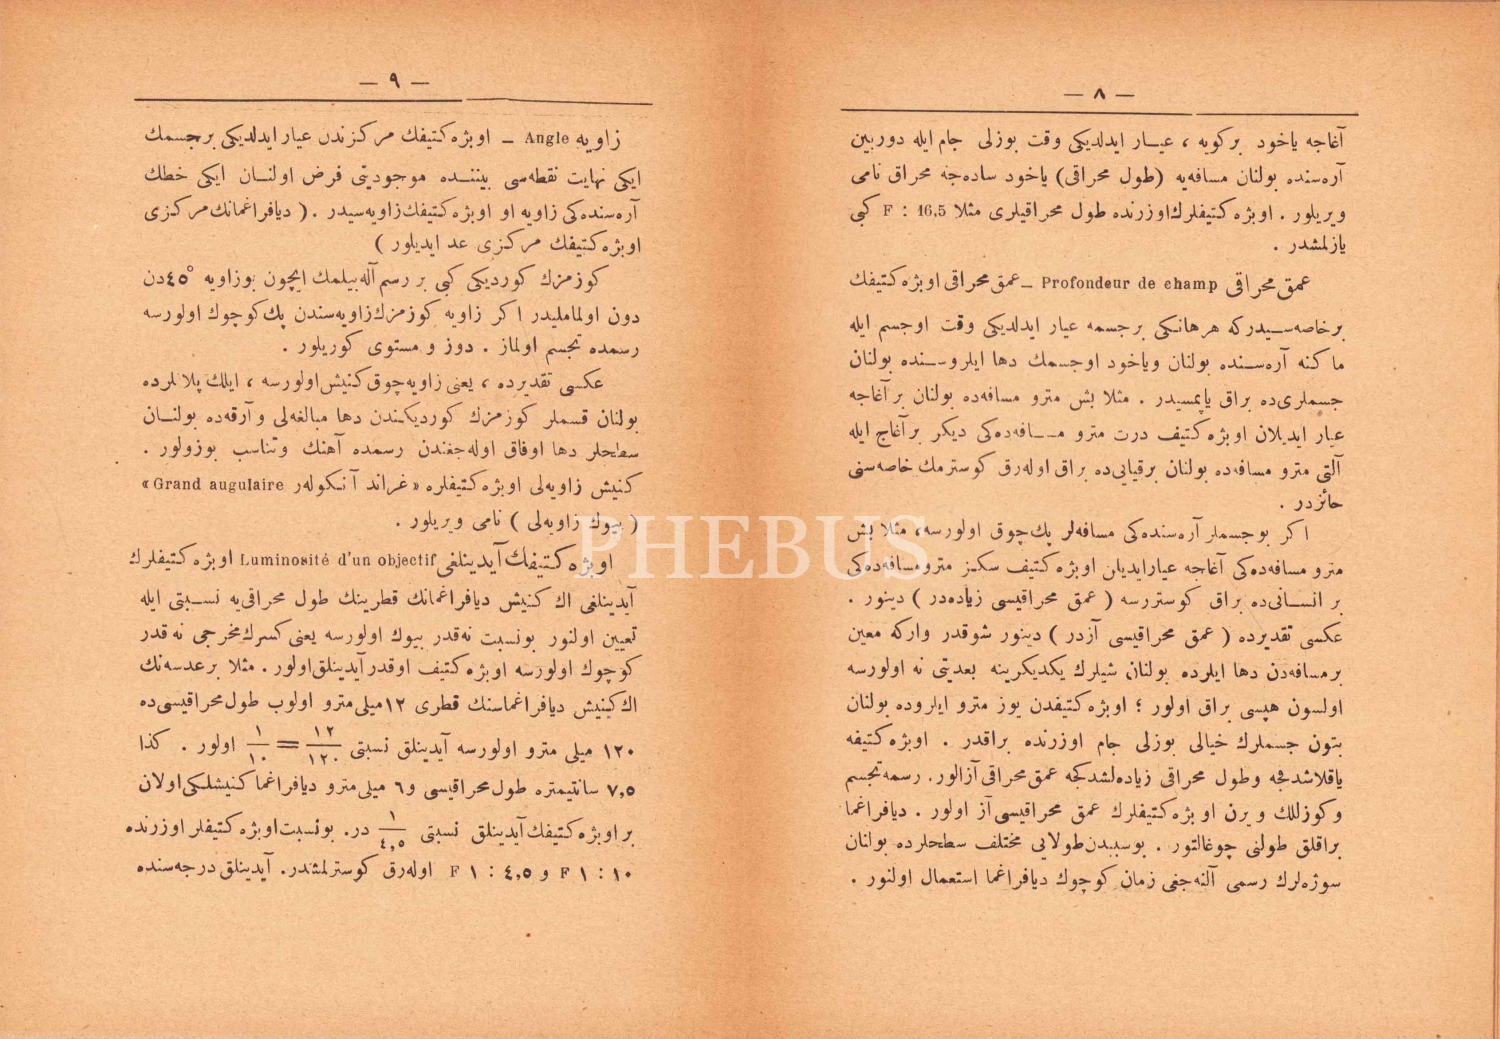 — ٨ —
آغاجه ياخود بركويه ، عيار ايدلديكى وقت بوزلى جام ايله دوربين
آره‌سنده بولنان مسافه‌يه (طول محراقى) ياخود ساده‌جه محراق نامى
ويريلور . اوبژه‌كتيفلرك اوزرنده طول محراقيلرى مثلا F : 16,5 كبى
يازلمشدر .
عمق محراقى Profondeur de champ ــ عمق محراقى اوبژه‌كتيفك
برخاصه‌سيدركه هرهانكى برجسمه عيار ايدلديكى وقت اوجسم ايله
ماكنه آره‌سنده بولنان وياخود اوجسمك دها ايلروسنده بولنان
جسملرى‌ده براق ياپمسيدر . مثلا بش مترو مسافه‌ده بولنان برآغاجه
عيار ايديلان اوبژه‌كتيف درت مترو مسافه‌ده‌كى ديكر برآغاج ايله
آلتى مترو مسافه‌ده بولنان برقيايى‌ده براق اوله‌رق كوسترمك خاصه‌سنى
حائزدر .
اكر بوجسملر آره‌سنده‌كى مسافه‌لر پك‌چوق اولورسه، مثلا بش
مترو مسافه‌ده‌كى آغاجه عيارايديلن اوبژه‌كتيف سكز مترومسافه‌ده‌كى
بر انسانى‌ده براق كوستررسه ( عمق محراقيسى زياده‌در ) دينور .
عكسى تقديرده ( عمق محراقيسى آزدر ) دينور شوقدر واركه معين
برمسافه‌دن دها ايلرده بولنان شيلرك يكديكرينه بعديتى نه اولورسه
اولسون هپسى براق اولور ؛ اوبژه‌كتيفدن يوز مترو ايلروده بولنان
بتون جسملرك خيالى بوزلى جام اوزرنده براقدر . اوبژه‌كتيفه
ياقلاشدقجه وطول محراقى زياده‌لشدكجه عمق محراقى آزالور. رسمه تجسم
وكوزللك ويرن اوبژه‌كتيفلرك عمق محراقيسى آز اولور . ديافراغما
براقلق طولنى چوغالتور . بوسببدن‌طولايى مختلف سطحلرده بولنان
سوژه‌لرك رسمى آلنه‌جغى زمان كوچوك ديافراغما استعمال اولنور .
— ٩ —
زاويه Angle ــ اوبژه‌كتيفك مركزندن عيار ايدلديكى برجسمك
ايكى نهايت نقطه‌سى بيننده موجوديتى فرض اولنان ايكى خطك
آره‌سنده‌كى زاويه او اوبژه‌كتيفك زاويه‌سيدر .( ديافراغمانك مركزى
اوبژه‌كتيفك مركزى عد ايديلور )
كوزمزك كورديكى كبى بر رسم آله‌بيلمك ايچون بوزاويه °٤٥دن
دون اولمامليدر اكر زاويه كوزمزك زاويه‌سندن پك‌كوچوك اولورسه
رسمده تجسم اولماز . دوز و مستوى كوريلور .
عكسى تقديرده ، يعنى زاويه‌چوق كنيش‌اولورسه ، ايلك پلانلرده
بولنان قسملر كوزمزك كورديكندن دها مبالغه‌لى و آرقه‌ده بولنان
سطحلر دها اوفاق اوله‌جغندن رسمده آهنك وتناسب بوزولور .
كنيش زاويه‌لى اوبژه‌كتيفلره «غراند آنكوله‌ر Grand augulaire»
( بيوك زاويه‌لى ) نامى ويريلور .
اوبژه‌كتيفك آيدينلغى Luminosité d'un objectif اوبژه‌كتيفلرك
آيدينلغى اك كنيش ديافراغمانك قطرينك طول محراقى‌يه نسبتى ايله
تعيين اولنور بونسبت نه‌قدر بيوك اولورسه يعنى كسرك‌مخرجى نه‌قدر
كوچوك اولورسه اوبژه‌كتيف اوقدر آيدينلق‌اولور . مثلا برعدسه‌نك
اك‌كينيش ديافراغماسنك قطرى ١٢ميلى‌مترو اولوب طول‌محراقيسى‌ده
١٢٠ ميلى مترو اولورسه آيدينلق نسبتى ١٢/١٢٠ = ١/١٠ اولور . كذا
٧,٥ سانتيمتره طول‌محراقيسى و٦ ميلى‌مترو ديافراغما كنيشلكى‌اولان
بر اوبژه‌كتيفك آيدينلق نسبتى ١/٤,٥ در. بونسبت‌اوبژه‌كتيفلر اوزرنده
F ١ : ١٠ و F ١ : ٤,٥ اوله‌رق كوسترلمشدر. آيدينلق درجه‌سنده
PHEBUS